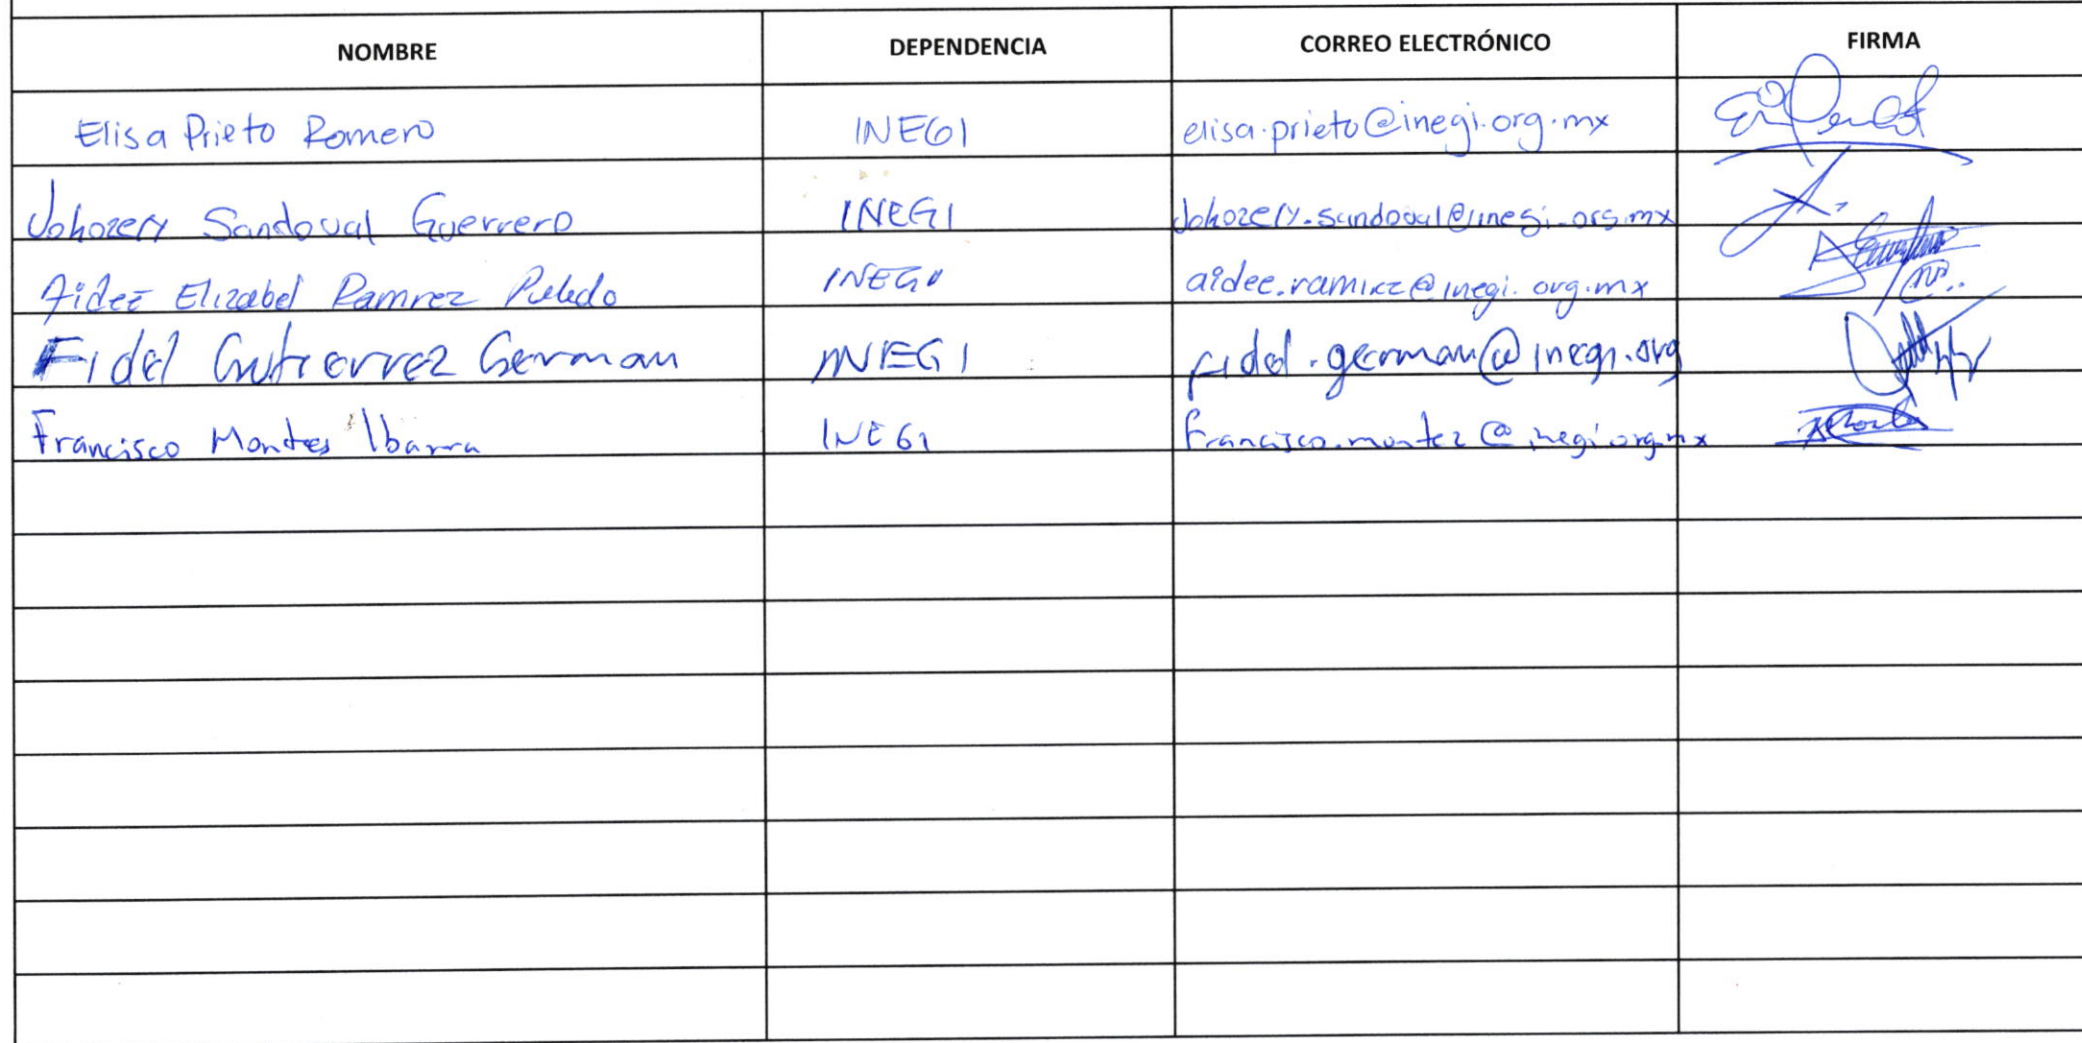 NOMBRE DEPENDENCIA CORREO ELECTRÓNICO FIRMA
Elisa Prieto Romero INEGI elisa.prieto@inegi.org.mx
Johozery Sandoval Guerrero INEGI Johozery.sandoval@inegi.org.mx
Aideé Elizabel Ramirez INEGI aidee.ramirez@inegi.org.mx
Fidel Gutierrez German INEGI fidel.german@inegi.org
Francisco Montes Ibarra INEGI francisco.montez@inegi.org.mx